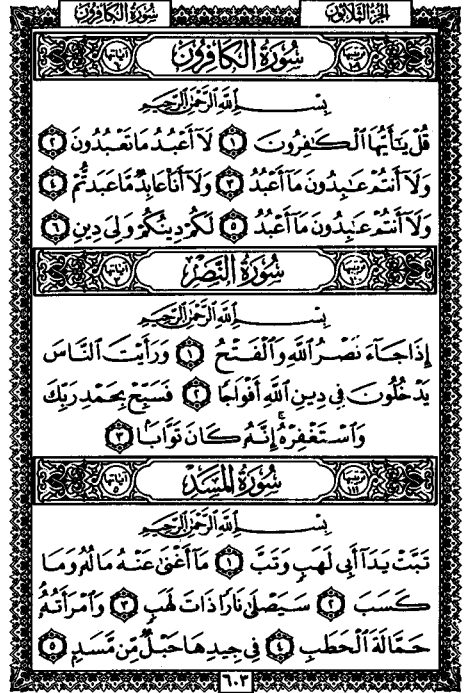 سُورَةُ الكَافِرُونَ الجُزْءُ الثَّلَاثُونَ
سُورَةُ الكَافِرُونَ آيَاتُهَا ٦
بِسْمِ اللَّهِ الرَّحْمَٰنِ الرَّحِيمِ
قُلْ يَٰٓأَيُّهَا ٱلْكَٰفِرُونَ ١ لَآ أَعْبُدُ مَا تَعْبُدُونَ ٢
وَلَآ أَنتُمْ عَٰبِدُونَ مَآ أَعْبُدُ ٣ وَلَآ أَنَا۠ عَابِدٌ مَّا عَبَدتُّمْ ٤
وَلَآ أَنتُمْ عَٰبِدُونَ مَآ أَعْبُدُ ٥ لَكُمْ دِينُكُمْ وَلِىَ دِينِ ٦
سُورَةُ النَّصْرِ آيَاتُهَا ٣
بِسْمِ اللَّهِ الرَّحْمَٰنِ الرَّحِيمِ
إِذَا جَآءَ نَصْرُ ٱللَّهِ وَٱلْفَتْحُ ١ وَرَأَيْتَ ٱلنَّاسَ
يَدْخُلُونَ فِى دِينِ ٱللَّهِ أَفْوَاجًا ٢ فَسَبِّحْ بِحَمْدِ رَبِّكَ
وَٱسْتَغْفِرْهُ ۚ إِنَّهُۥ كَانَ تَوَّابًۢا ٣
سُورَةُ المَسَدِ آيَاتُهَا ٥
بِسْمِ اللَّهِ الرَّحْمَٰنِ الرَّحِيمِ
تَبَّتْ يَدَآ أَبِى لَهَبٍ وَتَبَّ ١ مَآ أَغْنَىٰ عَنْهُ مَالُهُۥ وَمَا
كَسَبَ ٢ سَيَصْلَىٰ نَارًا ذَاتَ لَهَبٍ ٣ وَٱمْرَأَتُهُۥ
حَمَّالَةَ ٱلْحَطَبِ ٤ فِى جِيدِهَا حَبْلٌ مِّن مَّسَدٍۭ ٥
٦٠٣